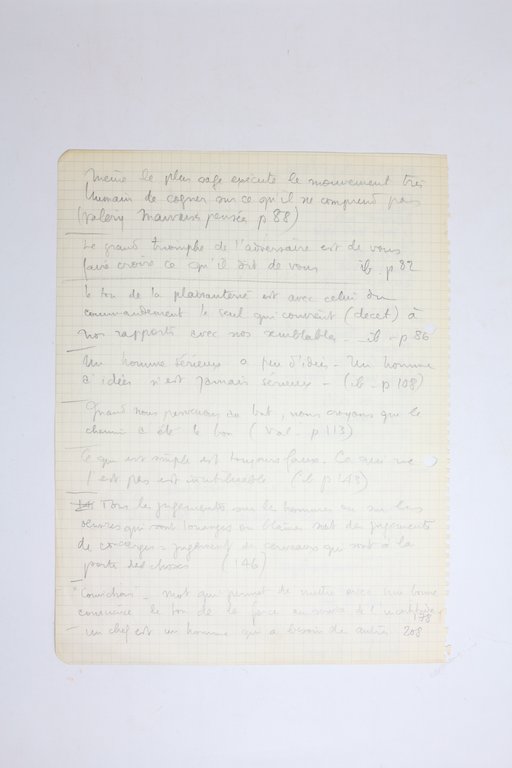 même le plus sage exécute le mouvement très
humain de cogner sur ce qu'il ne comprend pas
(Valery Mauvaises pensées p 88)
Le grand triomphe de l'adversaire est de vous
faire croire ce qu'il dit de vous ib. p 82
le ton de la plaisanterie est avec celui du
commandement le seul qui convient (decet) à
nos rapports avec nos semblables - ib - p 86
Un homme sérieux a peu d'idées - Un homme
à idées n'est jamais sérieux - (ib p 108)
Quand nous parvenons au but, nous croyons que le
chemin a été le bon (Val. p 113)
Ce qui est simple est toujours faux. Ce qui ne
l'est pas est inutilisable (ib p 143)
Tous les jugements sur les hommes ou sur les
œuvres qui sont louanges ou blâmes sont des jugements
de concierges = jugements de cerveaux qui sont à la
porte des choses (146)
Conviction - mot qui permet de mettre avec une bonne
conscience le ton de la force au service de l'incertitude 178
- un chef est un homme qui a besoin des autres 208